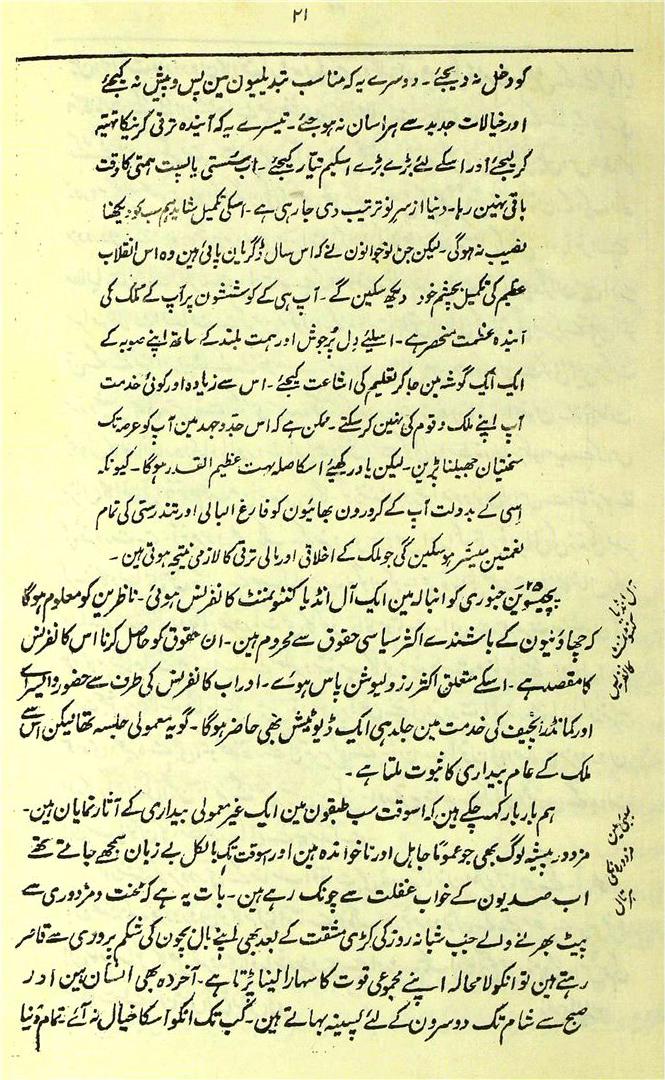 ۲۱
کو دخل نہ دیجئے ۔ دوسرے یہ کہ مناسب تبدیلیون مین پس و پیش نہ کیجئے
اور خیالات جدید سے ہراسان نہ ہو جئے ۔ تیسرے یہ کہ آیندہ ترقی کرنیکا تہیّہ
کر لیجئے اور اسکے لئے بڑے بڑے اسکیم تیار کیجئے ۔ اب سُستی یا پست ہمتی کا وقت
باقی نہین رہا ۔ دنیا از سرِ نو ترتیب دی جا رہی ہے ۔ اسکی تکمیل شاید ہم سب کو دیکھنا
نصیب نہ ہوگی ۔ لیکن جن نوجوانون نے کہ اس سال ڈگریان پائی ہین وہ اس انقلاب
عظیم کی تکمیل بچشم خود دیکھ سکین گے ۔ آپ ہی کے کوششون پر آپ کے ملک کی
آیندہ عظمت منحصر ہے ۔ اسلیئے دِل پُرجوش اور ہمت بلند کے ساتھ اپنے صوبہ کے
ایک ایک گوشہ مین جا کر تعلیم کی اشاعت کیجئے ۔ اس سے زیادہ اور کوئی خدمت
آپ اپنے ملک و قوم کی نہین کر سکتے ۔ ممکن ہے کہ اس جدّوجہد مین آپ کو عرصہ تک
سختیان جھیلنا پڑین ۔ لیکن یاد رکھیئے اسکا صلہ بہت عظیم القدر ہوگا ۔ کیونکہ
اِسی کے بدولت آپ کے کرورون بھائیون کو فارغ البالی اور تندرستی کی تمام
نعمتین میسّر ہو سکین گی جو ملک کے اخلاقی اور مالی ترقی کا لازمی نتیجہ ہوتی ہین ۔
پچیسوین ۲۵ جنوری کو انبالہ مین ایک آل انڈیا کنٹونمنٹ کانفرنس ہوئی ۔ ناظرین کو معلوم ہوگا
کہ چھاؤنیون کے باشندے اکثر سیاسی حقوق سے محروم ہین ۔ ان حقوق کو حاصل کرنا اس کانفرنس
کا مقصد ہے ۔ اسکے متعلق اکثر رزولیوشن پاس ہوے ۔ اور اب کانفرنس کی طرف سے حضور وائسراے
اور کمانڈر انچیف کی خدمت مین جلد ہی ایک ڈیوٹیشن بھی حاضر ہوگا ۔ گو یہ معمولی جلسہ تھا لیکن اس سے
ملک کے عام بیداری کا ثبوت ملتا ہے ۔
ہم بار بار کہہ چکے ہین کہ اسوقت سب طبقون مین ایک غیر معمولی بیداری کے آثار نمایان ہین ۔
مزدور پیشہ لوگ بھی جو عموماً جاہل اور ناخواندہ ہین اور اسوقت تک بالکل بے زبان سمجھے جاتے تھے
اب صدیون کے خواب غفلت سے چونک رہے ہین ۔ بات یہ ہے کہ محنت و مزدوری سے
پیٹ بھرنے والے جب شبانہ روز کی کڑی مشقت کے بعد بھی اپنے بال بچون کی شکم پروری سے قاصر
رہتے ہین تو انکو لامحالہ اپنے مجموعی قوت کا سہارا لینا پڑتا ہے ۔ آخر وہ بھی انسان ہین اور
صبح سے شام تک دوسرون کے لئے پسینہ بہاتے ہین ۔ کب تک انکو اسکا خیال نہ آئے تمام دُنیا
آل انڈیا
کنٹونمنٹ
کانفرنس
بمبئی مین
مزدورونکی
ہڑتال